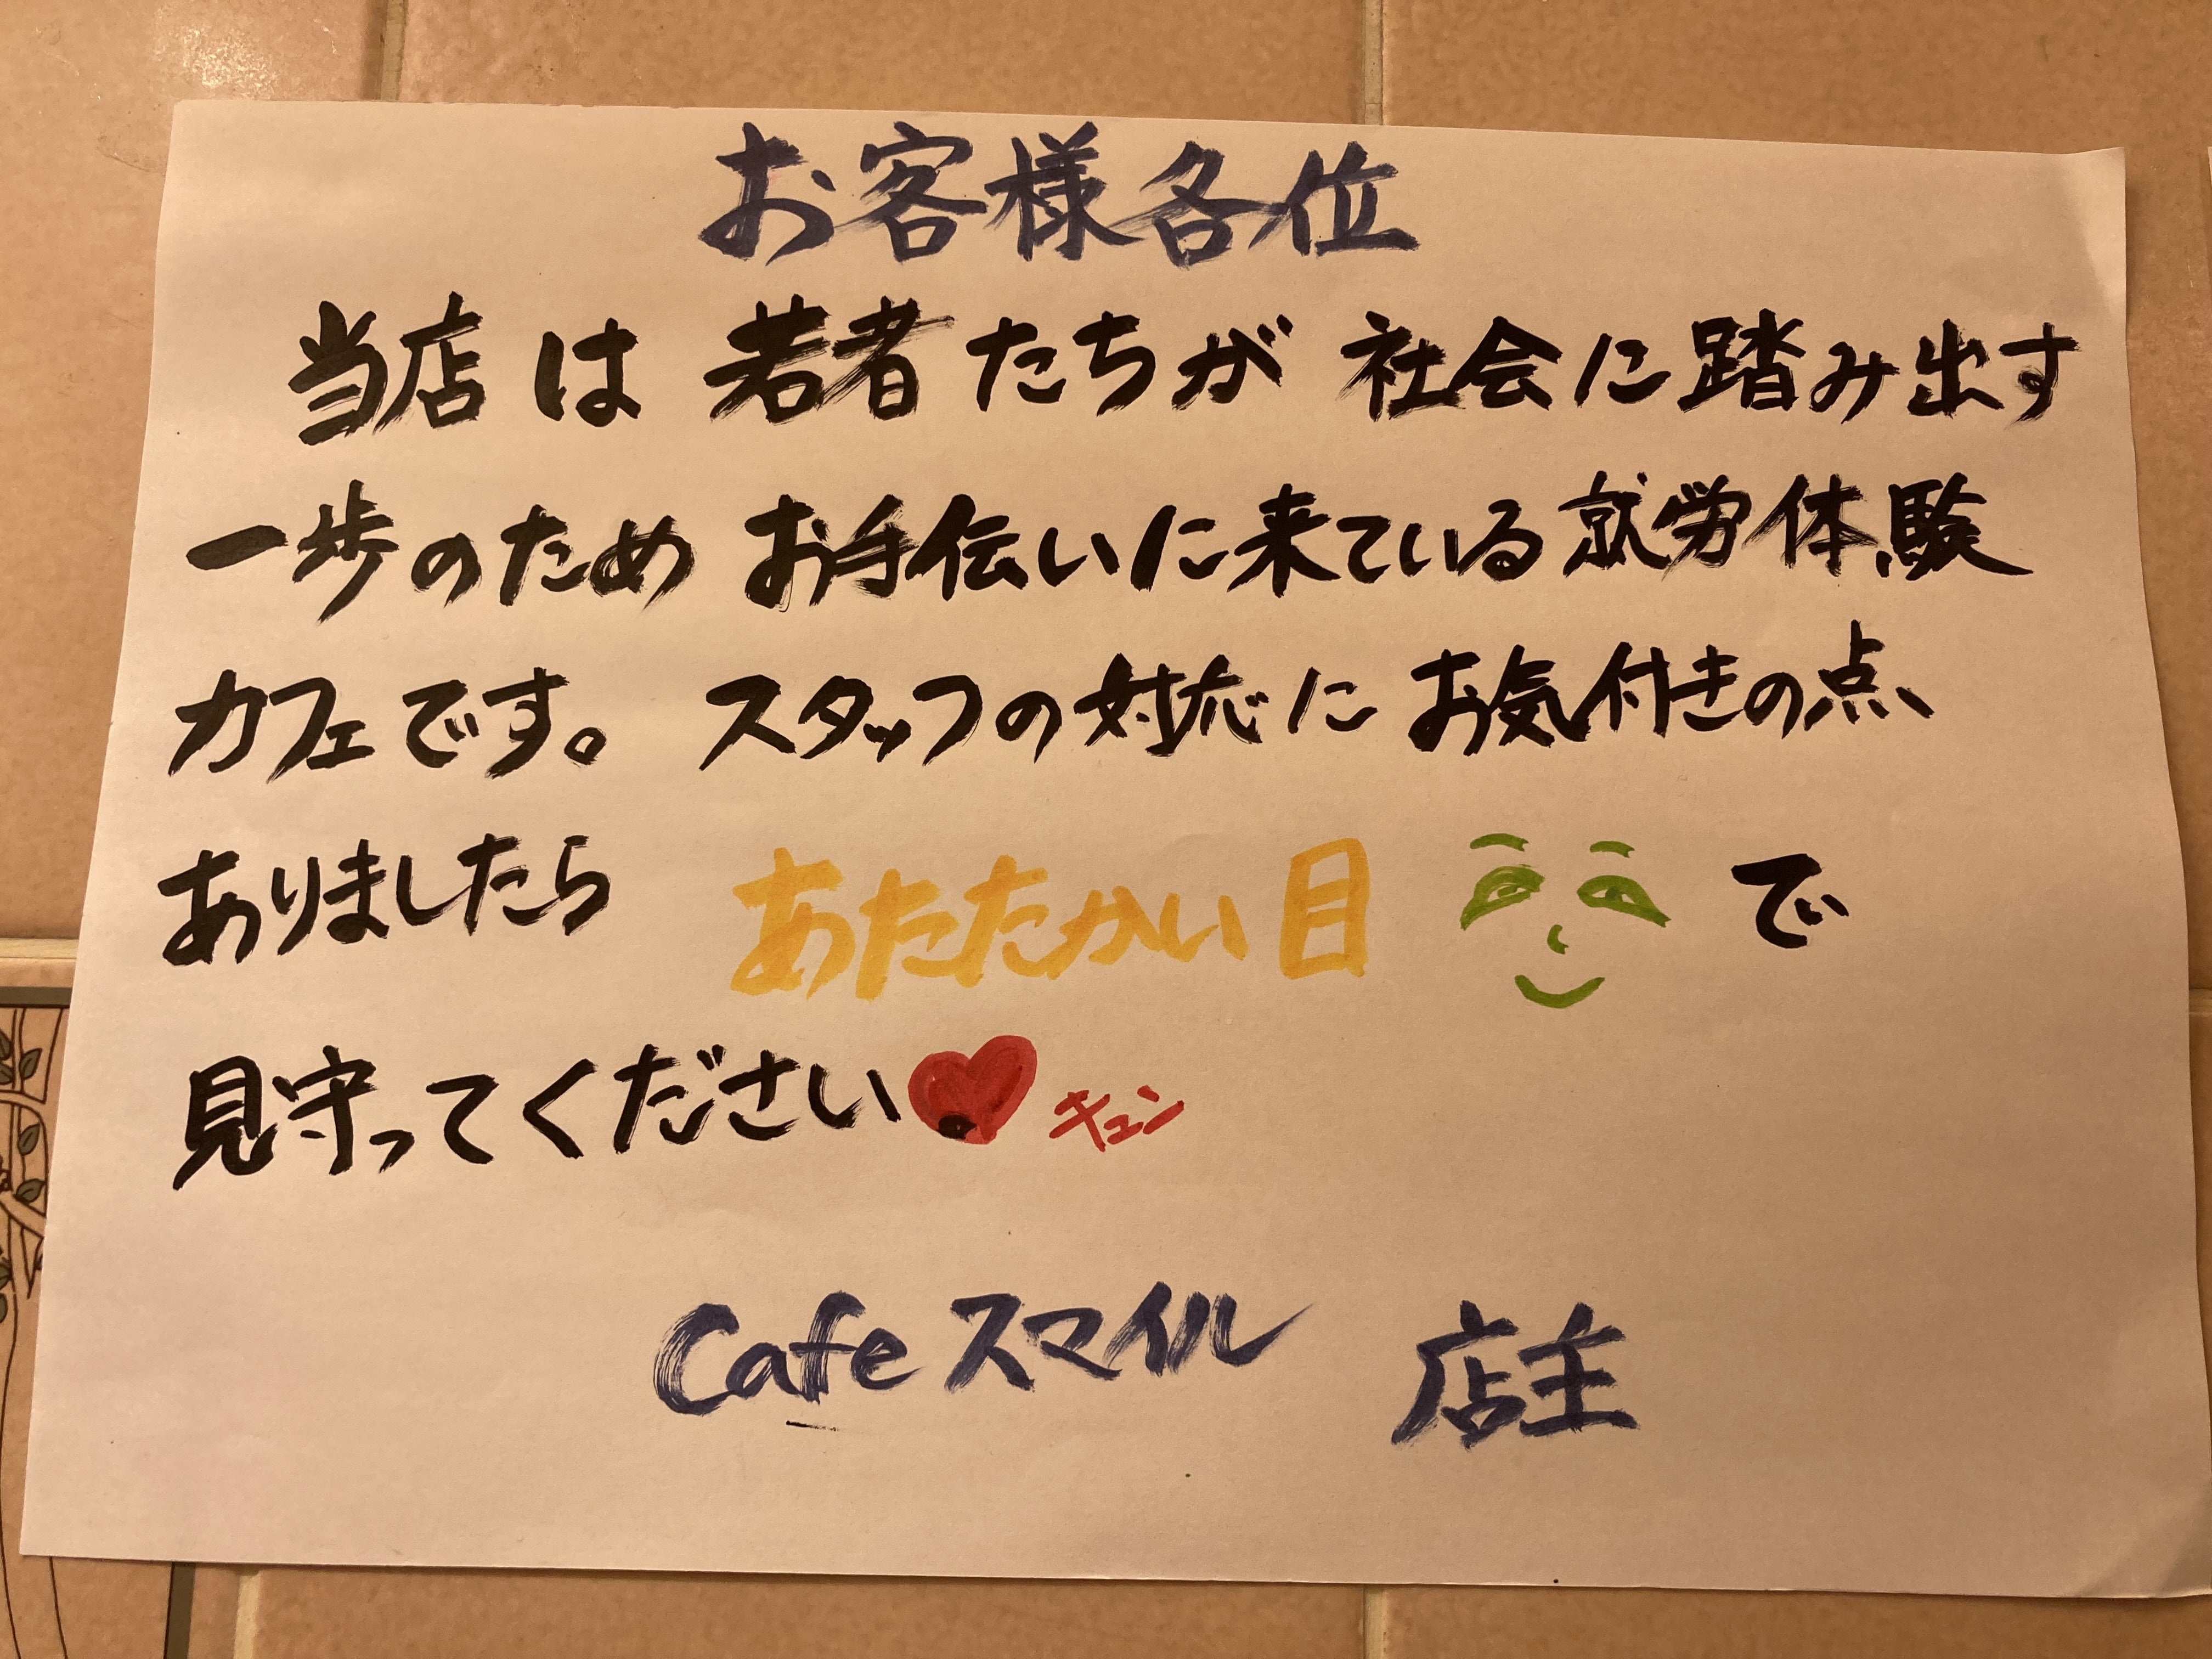 お客様各位
当店は若者たちが社会に踏み出す
一歩のためお手伝いに来ている就労体験
カフェです。スタッフの対応にお気付きの点、
ありましたら あたたかい目で
見守ってください キュン
Cafe スマイル 店主